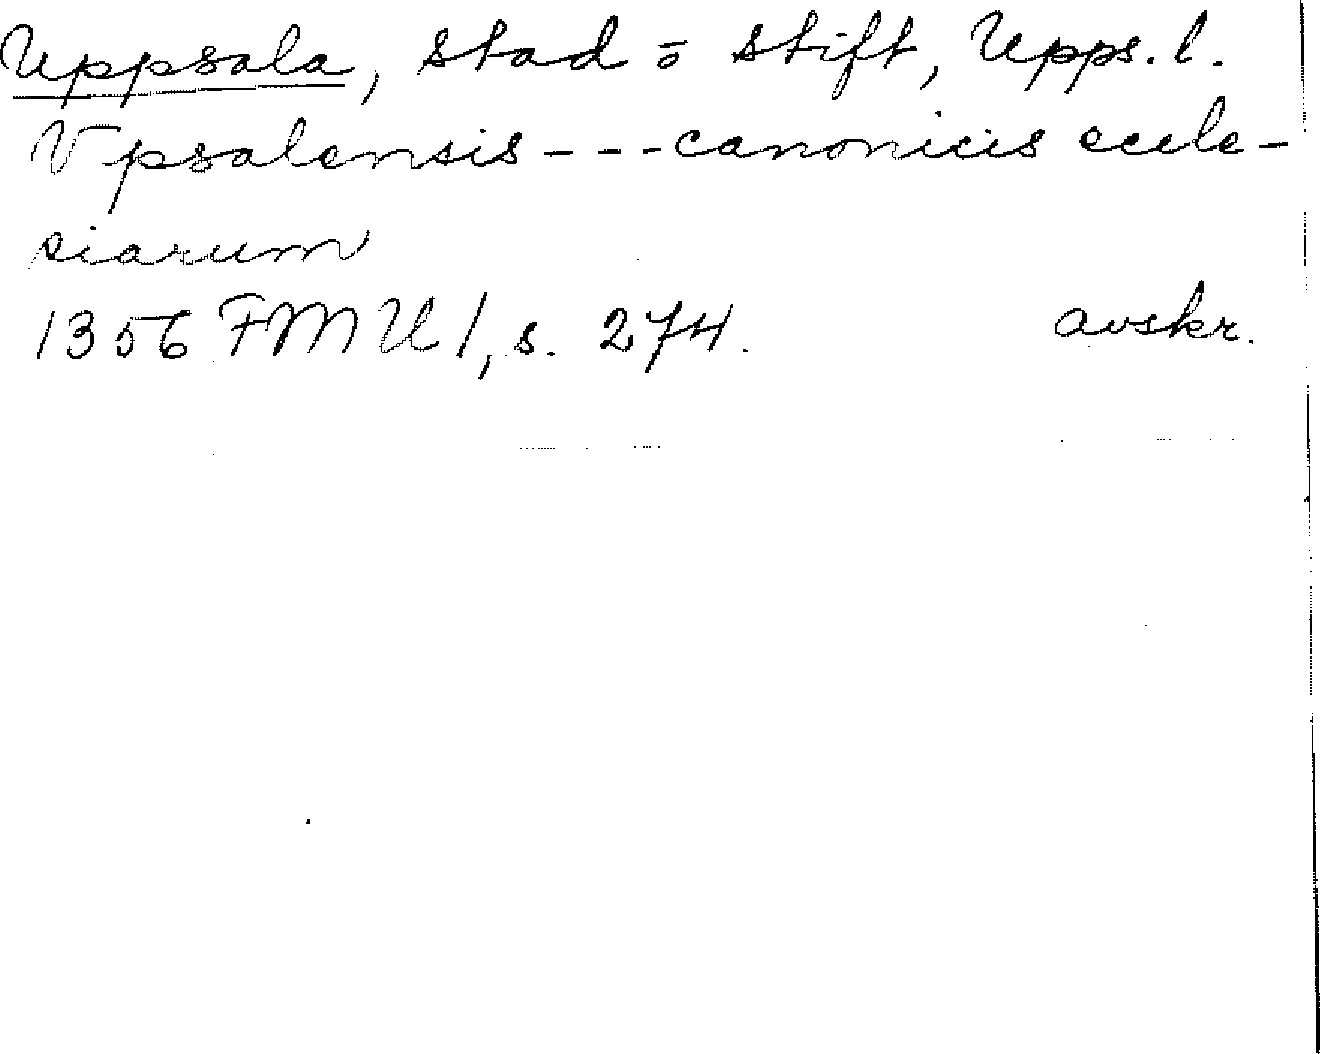 Uppsala, stad o stift, Upps. l.
Vpsalensis - - - canonicis eccle-
siarum
1356 FMU 1, s. 274. avskr.